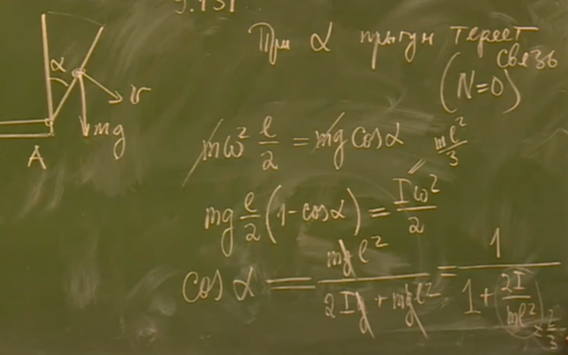 При α прыгун теряет
связь
(N=0)
α
v
mg
A
mω² l/2 = mg cos α
ml²/3
mg l/2 (1-cosα) = Iω²/2
cos α = mgl²/(2Ig + mgl²) = 1/(1 + 2I/ml²)
2/3